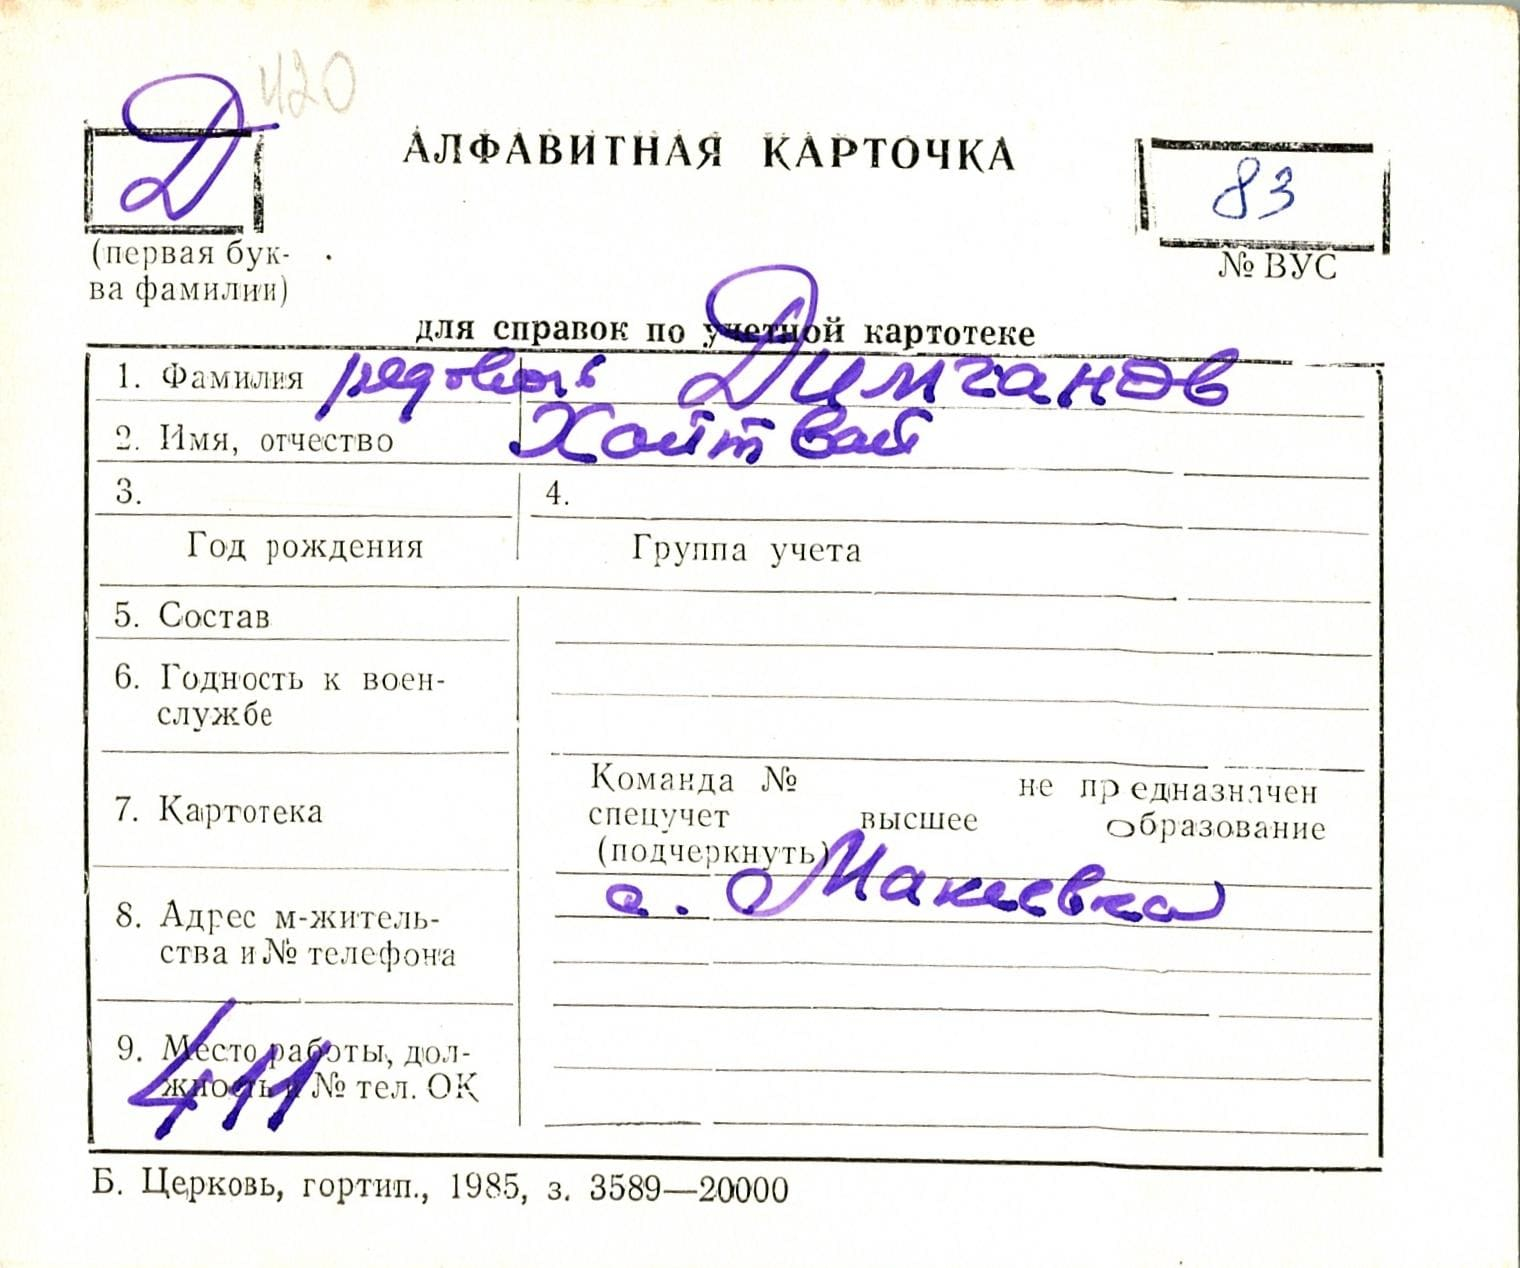 420
Д
АЛФАВИТНАЯ КАРТОЧКА
83
(первая бук-
ва фамилии)
№ ВУС
для справок по учетной картотеке
1. Фамилия рядовой Димчанов
2. Имя, отчество Хойтвай
3. 4.
Год рождения Группа учета
5. Состав
6. Годность к воен-
службе
7. Картотека
Команда № не предназначен
спецучет высшее образование
(подчеркнуть)
8. Адрес м-житель-
ства и № телефона
с. Макеевка
9. Место работы, дол-
жность и № тел. ОК
411
Б. Церковь, гортип., 1985, з. 3589—20000